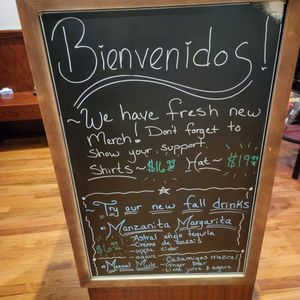 Bienvenidos!
~We have fresh new
Merch! Don't forget to
show your support.
Shirts ~ $16.99 Hat ~ $19.99
~Try our new fall drinks
Manzanita Margarita
- Astral añejo tequila
- Creme de cassis
- apple cider
- agave
Mezcal Mule - Casamigos mezcal
- Ginger Bier
- Lime juice & agave